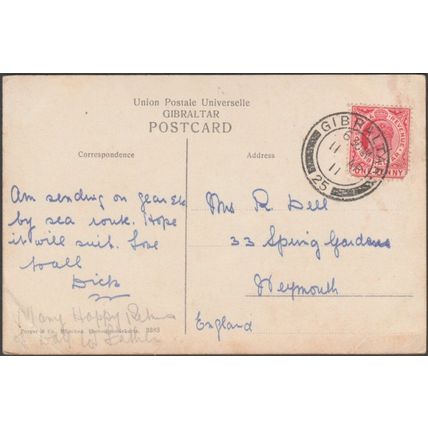 Union Postale Universelle
GIBRALTAR
POSTCARD
Correspondence
Address
Am sending on gear Etc
by sea route. Hope
it will suit. Love
to all
Dick
Many Happy Returns
of Day to Father
Mrs R Dell
33 Spring Gardens
Weymouth
England
GIBRALTAR
11
11
25
REVENUE
ONE PENNY